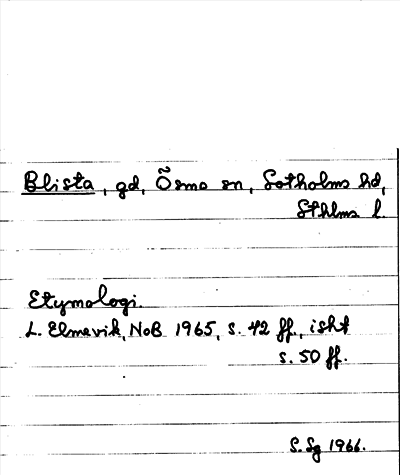 Blista, gd, Ösmo sn, Sotholms hd,
Sthlms l.
Etymologi.
L. Elmevik, NoB 1965, s. 42 ff., isht
s. 50 ff.
S. Sg 1966.